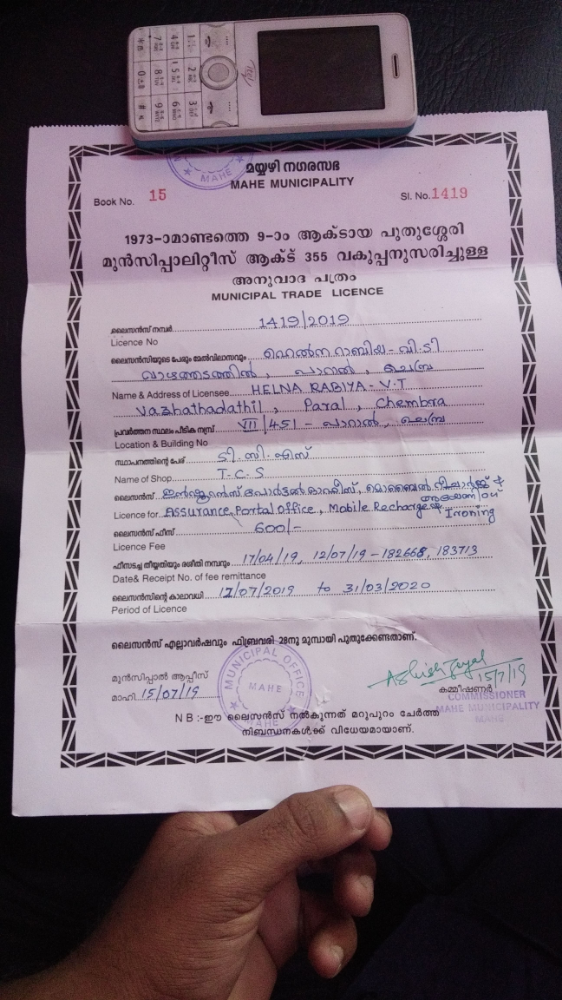 മയ്യഴി നഗരസഭ
MAHE MUNICIPALITY
Book No. 15
Sl. No. 1419
1973-ാമാണ്ടത്തെ 9-ാം ആക്ടായ പുതുശ്ശേരി
മുൻസിപ്പാലിറ്റീസ് ആക്ട് 355 വകുപ്പനുസരിച്ചുള്ള
അനുവാദ പത്രം
MUNICIPAL TRADE LICENCE
ലൈസൻസ് നമ്പർ 1419/2019
Licence No
ലൈസൻസിയുടെ പേരും മേൽവിലാസവും ഹെൽന റാബിയ - വി.ടി
വാഴത്തടത്തിൽ, പാറൽ, ചെമ്പ്ര
Name & Address of Licensee HELNA RABIYA - V.T
Vazhathadathil, Paral, Chembra
പ്രവർത്തന സ്ഥലം പീടിക നമ്പ്ര് VII/451 - പാറാൽ, ചെമ്പ്ര
Location & Building No
സ്ഥാപനത്തിന്റെ പേര് ടി.സി.എസ്
Name of Shop T.C.S
ലൈസൻസ് ഇൻഷൂറൻസ് പോർട്ടൽ ഓഫീസ്, മൊബൈൽ റീചാർജ്ജ് &
Licence for Assurance Portal Office, Mobile Recharge & Ironing
ലൈസൻസ് ഫീസ് 600/-
Licence Fee
ഫീസടച്ച തീയ്യതിയും രശീതി നമ്പറും 17/04/19, 12/07/19 - 182668, 183713
Date& Receipt No. of fee remittance
ലൈസൻസിന്റെ കാലാവധി 12/07/2019 to 31/03/2020
Period of Licence
ലൈസൻസ് എല്ലാവർഷവും ഫിബ്രവരി 28നു മുമ്പായി പുതുക്കേണ്ടതാണ്.
മുൻസിപ്പാൽ ആപ്പീസ്
മാഹി 15/07/19
MUNICIPAL OFFICE
MAHE
15/7/19
കമ്മീഷണർ
COMMISSIONER
MAHE MUNICIPALITY
MAHE
N B :-ഈ ലൈസൻസ് നൽകുന്നത് മറുപുറം ചേർത്ത
നിബന്ധനകൾക്ക് വിധേയമായാണ്.